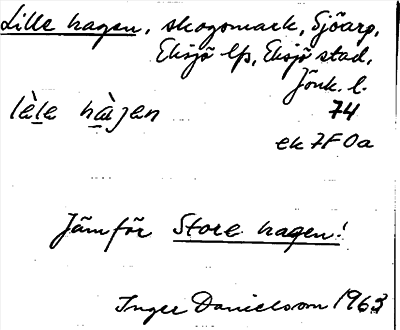 Lille hagen, skogsmark, Sjöarp,
Eksjö lfs, Eksjö stad,
Jönk. l.
lèle hàjen 74
ek 7F0a
Jämför Store hagen!
Inger Danielsson 1963